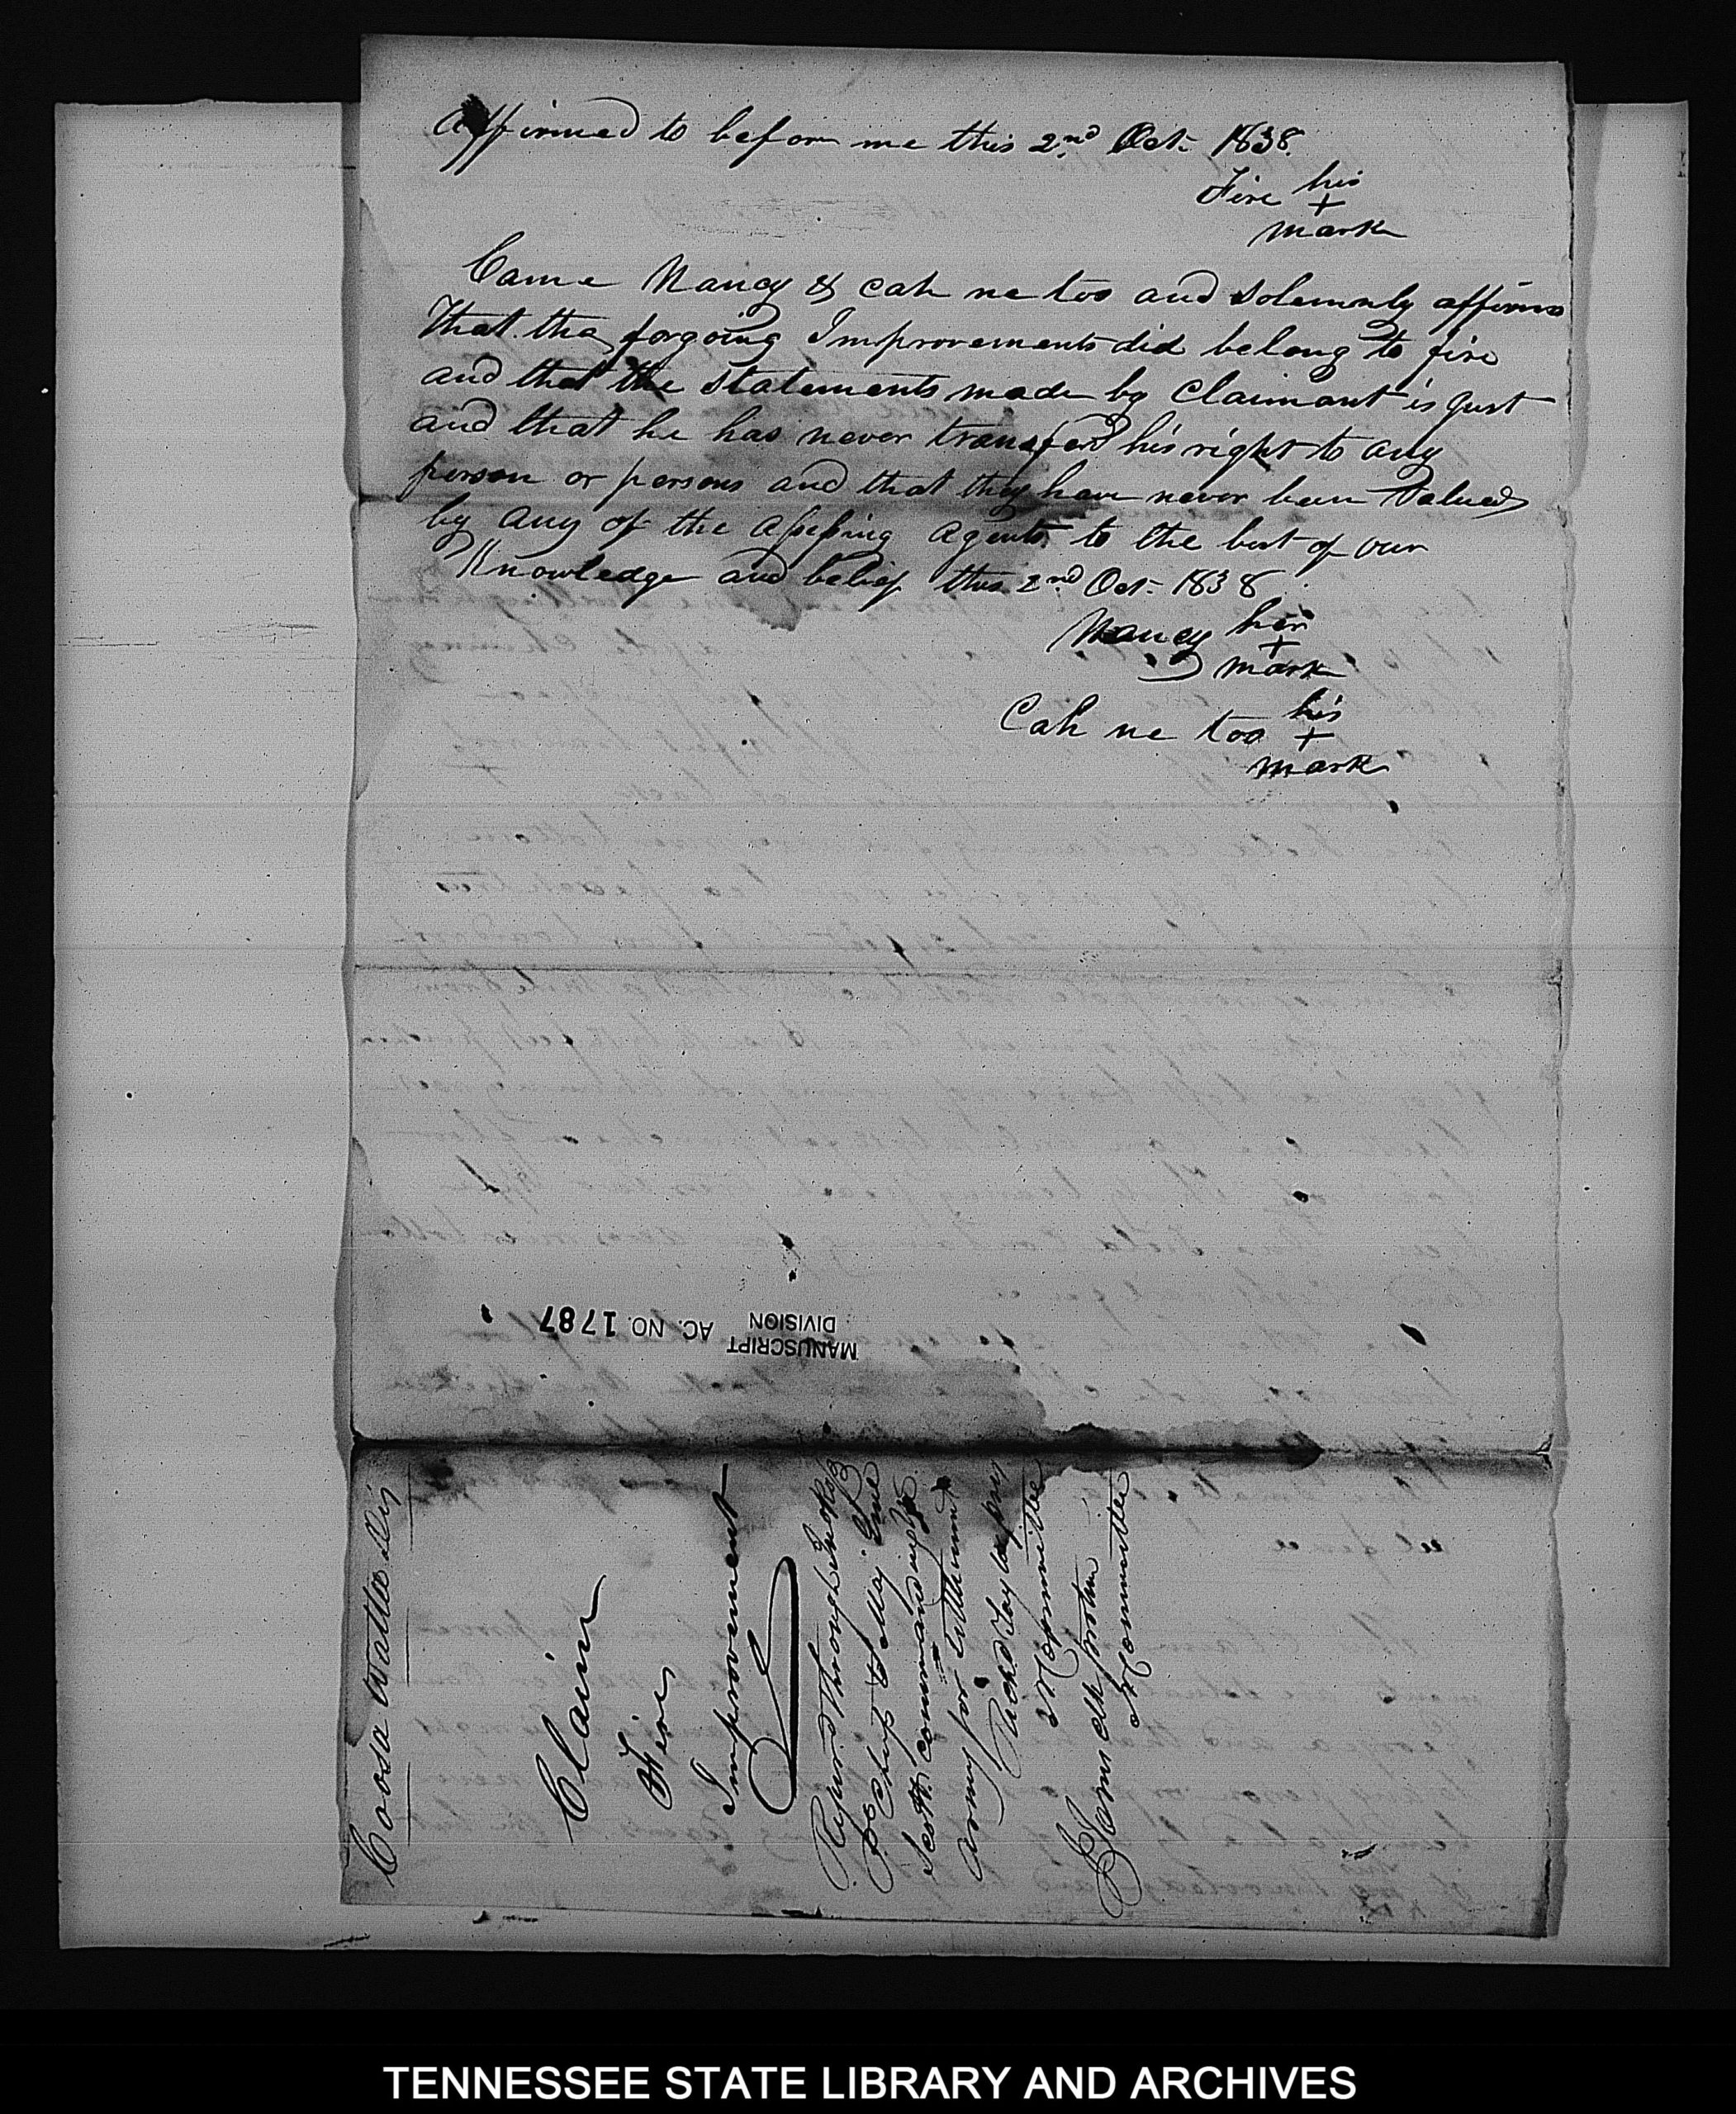 Affirmed to before me this 2nd Oct. 1838.
Fire his
+
mark
Came Nancy & Cah ne too and Solemnly affirms
That the forgoing Improvements did belong to fire
and that the Statements made by Claimant is Just
and that he has never transferd his right to any
person or persons and that they have never been Valued
by any of the assessing agents to the best of our
Knowledge and belief this 2nd Oct. 1838
Nancy her
+
mark
Cah ne too his
+
mark
MANUSCRIPT
DIVISION
AC. NO. 1787
Coosa Wattee
Claim
Fire
Improvement
Refurd through
to Maj. Genl
Scott commanding
army for settlement
Richd Taylor
Committee
Committee
TENNESSEE STATE LIBRARY AND ARCHIVES